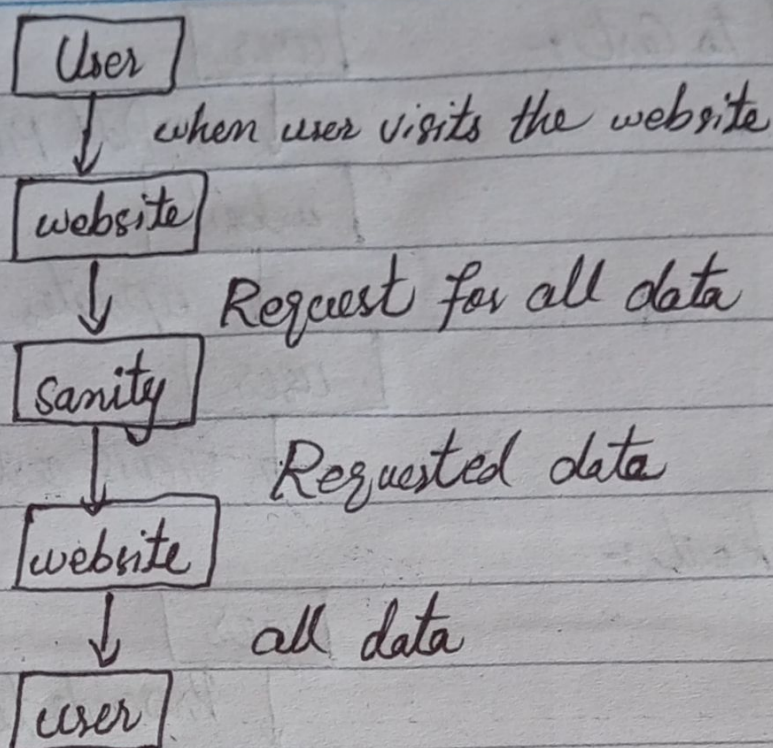 User
when user visits the website
website
Request for all data
sanity
Requested data
website
all data
user